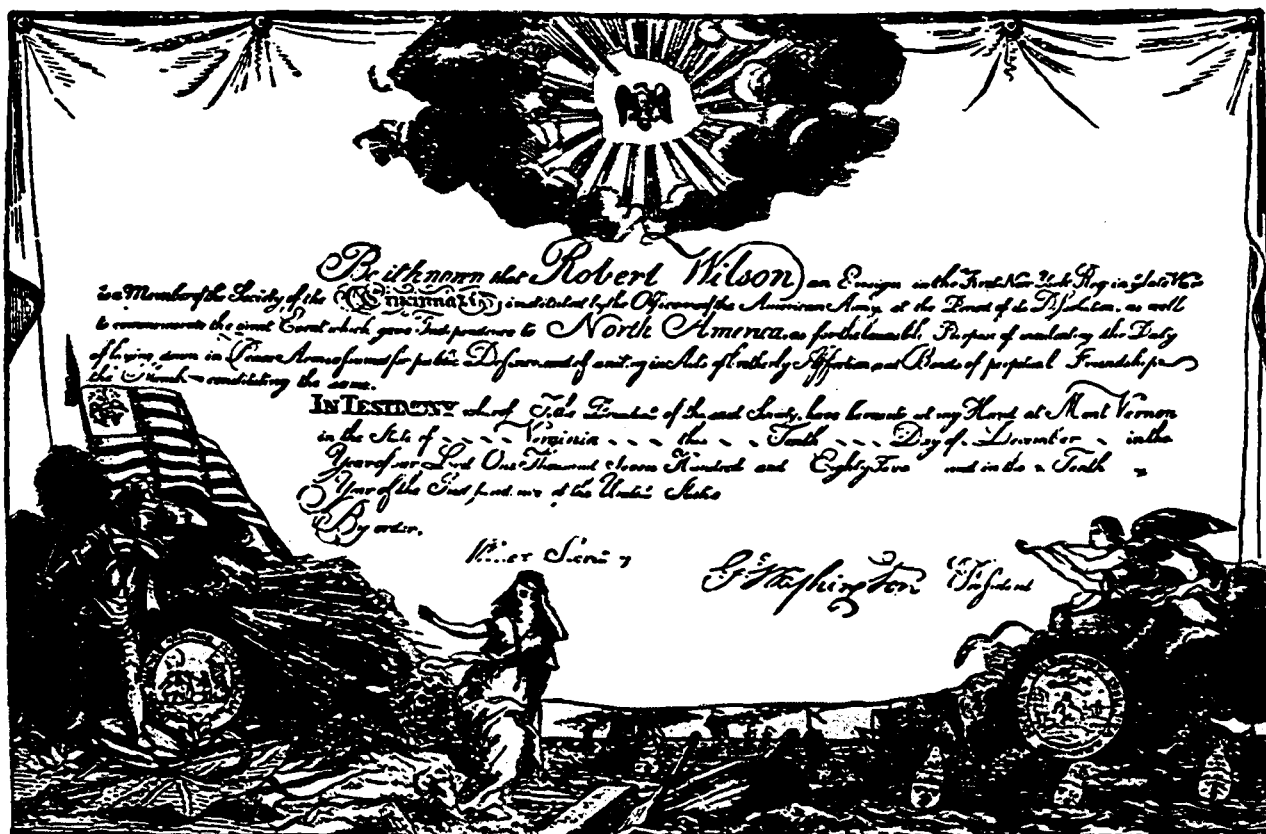 Be it known that Robert Wilson an Ensign in the First New York Reg in y late War
is a Member of the Society of the Cincinnati, instituted by the Officers of the American Army, at the Period of its Dissolution, as well
to commemorate the great Event which gave Independence to North America, as for the laudable Purpose of inculcating the Duty
of laying down in Peace Arms assumed for public Defence and of uniting in Acts of brotherly Affection and Bonds of perpetual Friendship
the constituting the same.
IN TESTIMONY whereof I the President of the said Society have hereunto set my Hand at Mount Vernon
in the State of Virginia this Tenth Day of December in the
Year of our Lord One Thousand Seven Hundred and Eighty Five and in the Tenth
Year of the Independence of the United States
By order,
G Washington President